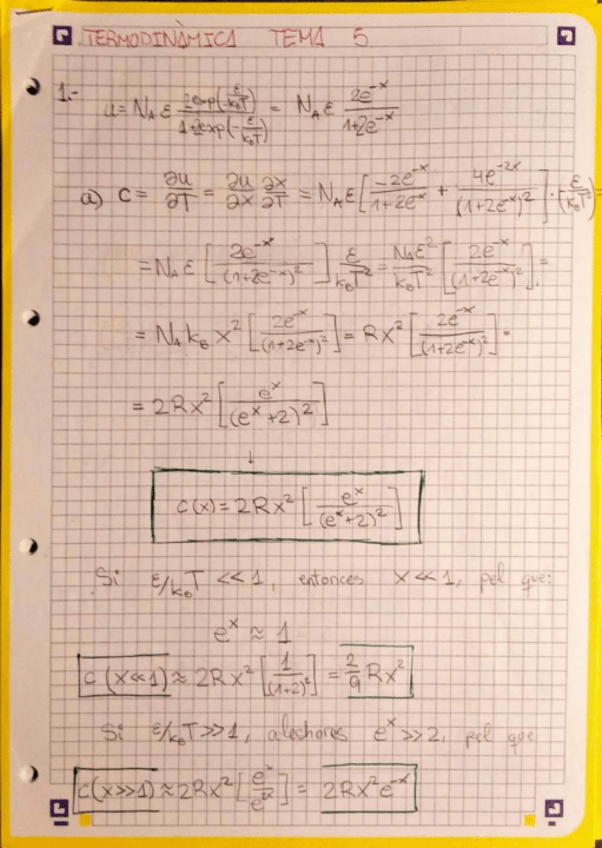 TERMODINÀMICA TEMA 5
1.- u = N_A ε \frac{2exp(-\frac{ε}{k_BT})}{1+2exp(-\frac{ε}{k_BT})} = N_A ε \frac{2e^{-x}}{1+2e^{-x}}
a) c = \frac{∂u}{∂T} = \frac{∂u}{∂x} \frac{∂x}{∂T} = N_A ε [\frac{-2e^{-x}}{1+2e^{-x}} + \frac{4e^{-2x}}{(1+2e^{-x})^2}] · (-\frac{ε}{k_BT^2}) =
= N_A ε [\frac{2e^{-x}}{(1+2e^{-x})^2}] \frac{ε}{k_BT^2} = \frac{N_Aε^2}{k_BT^2} [\frac{2e^{-x}}{(1+2e^{-x})^2}] =
= N_A k_B x^2 [\frac{2e^{-x}}{(1+2e^{-x})^2}] = Rx^2 [\frac{2e^{-x}}{(1+2e^{-x})^2}] =
= 2Rx^2 [\frac{e^x}{(e^x+2)^2}]
↓
c(x) = 2Rx^2 [\frac{e^x}{(e^x+2)^2}]
Si ε/k_BT << 1, entonces x << 1, pel que:
e^x ≈ 1
c(x<<1) ≈ 2Rx^2 [\frac{1}{(1+2)^2}] = \frac{2}{9} Rx^2
Si ε/k_BT >> 1, aleshores e^x >> 2, pel que
c(x>>1) ≈ 2Rx^2 [\frac{e^x}{e^{2x}}] = 2Rx^2e^{-x}